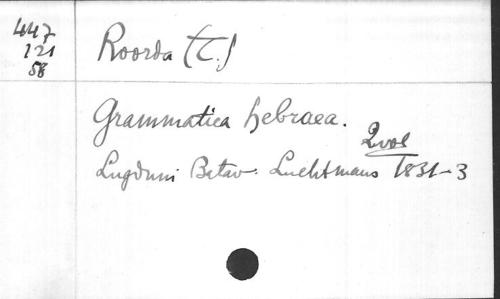 447
121
58
Roorda (T.)
Grammatica hebraea.
2 vol
Lugduni Batav. Luchtmans 1831-3